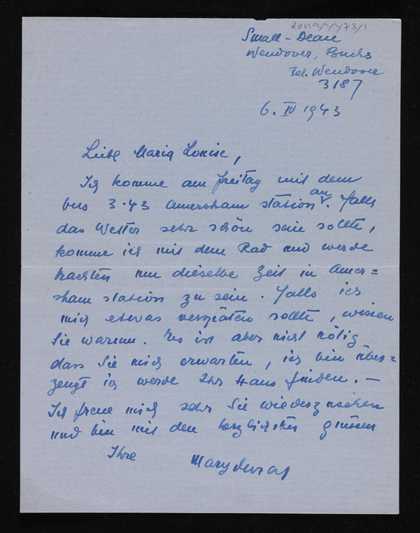 Small-Dean
Wendover, Bucks
Tel. Wendover
3187
6. IV 1943
Liebe Maria Louise,
Ich komme am Freitag mit dem
bus 3.43 Amersham station an. Falls
das Wetter sehr schön sein sollte,
komme ich mit dem Rad und werde
trachten um dieselbe Zeit in Amer=
sham station zu sein. Falls ich
mich etwas verspäten sollte, wissen
Sie warum. Es ist aber nicht nötig
dass Sie mich erwarten, ich bin über=
zeugt ich werde Ihr Haus finden. —
Ich freue mich sehr Sie wiederzusehen
und bin mit den herzlichsten grüssen
Ihre